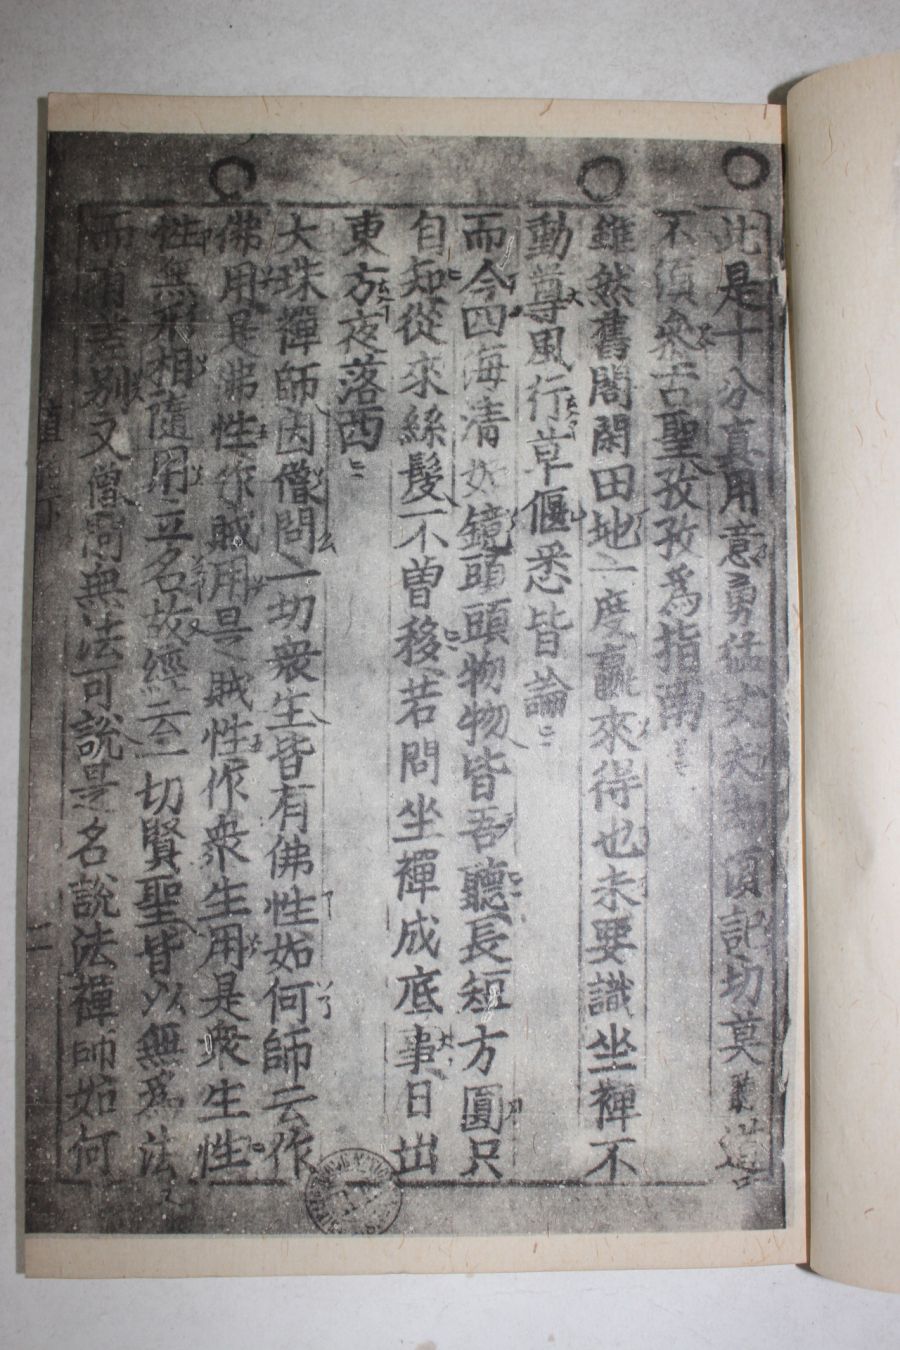 此是十分真用意勇猛丈夫却須記切莫聽道
不須參古聖孜孜爲指南
雖然舊閣閑田地一度贏來得也未要識坐禪不
動尊風行草偃悉皆論
而今四海清如鏡頭頭物物皆吾聽長短方圓只
自知從來絲髮不曾移若問坐禪成底事日出
東方夜落西
大珠禪師因僧問一切衆生皆有佛性如何師云作
佛用是佛性作賊用是賊性作衆生用是衆生性
性無形相隨用立名故經云一切賢聖皆以無爲法
而有差別又僧問無法可說是名說法禪師如何